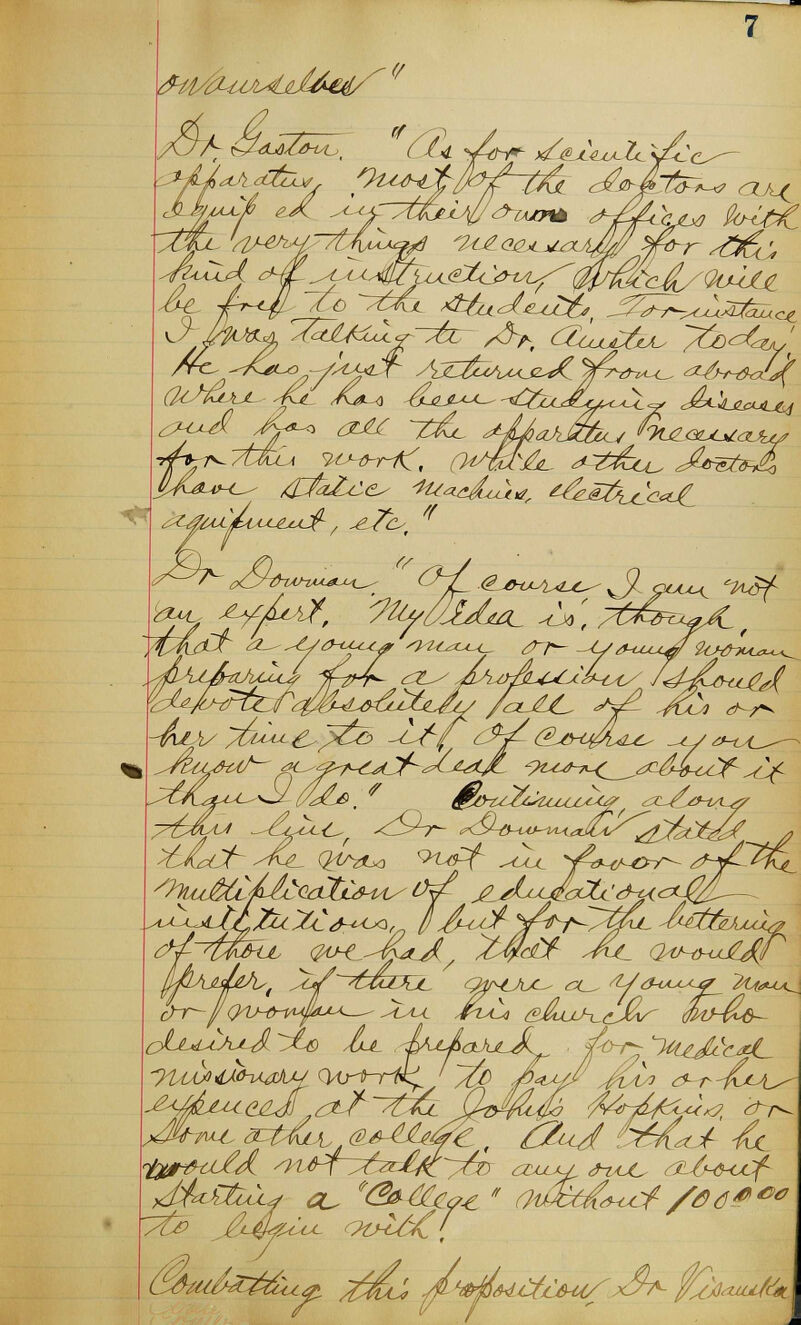 7
on ourselves"
Dr. Gaston. "As for scientific
apparatus, most of the doctors are
equip ed in their own offices with
the very things necessary for this
kind of instruction, which will
be free to the students. For instance,
I was talking to Dr. Amster today.
He has just returned from abroad
where he has been studying diseases
and has all the apparatus necessary
for this work. While other doctors
have static machines, electrical
aquipment, etc."
Dr Dowman. "Of course I am not
an expert. My idea is, though,
that a young man or young woman
preparing for a profession should
devote absolutely all of his or
her time to it. Of course you
know a great deal more about it
than I do." Continuing along
this line, Dr Dowman stated
that he was not in favor of the
multiplication of educational
institutions, but for the bettering
of those we had, that he would
prefer, if there were a young man
or woman in his church who
desired to be prepared for medical
missionary work, to pay his or her
expences at the Johns Hopkins, or
some other college. And that he
would not talk to any one about
starting a "College" without 100000
to begin with.
Combatting this proposition, Dr Visanska